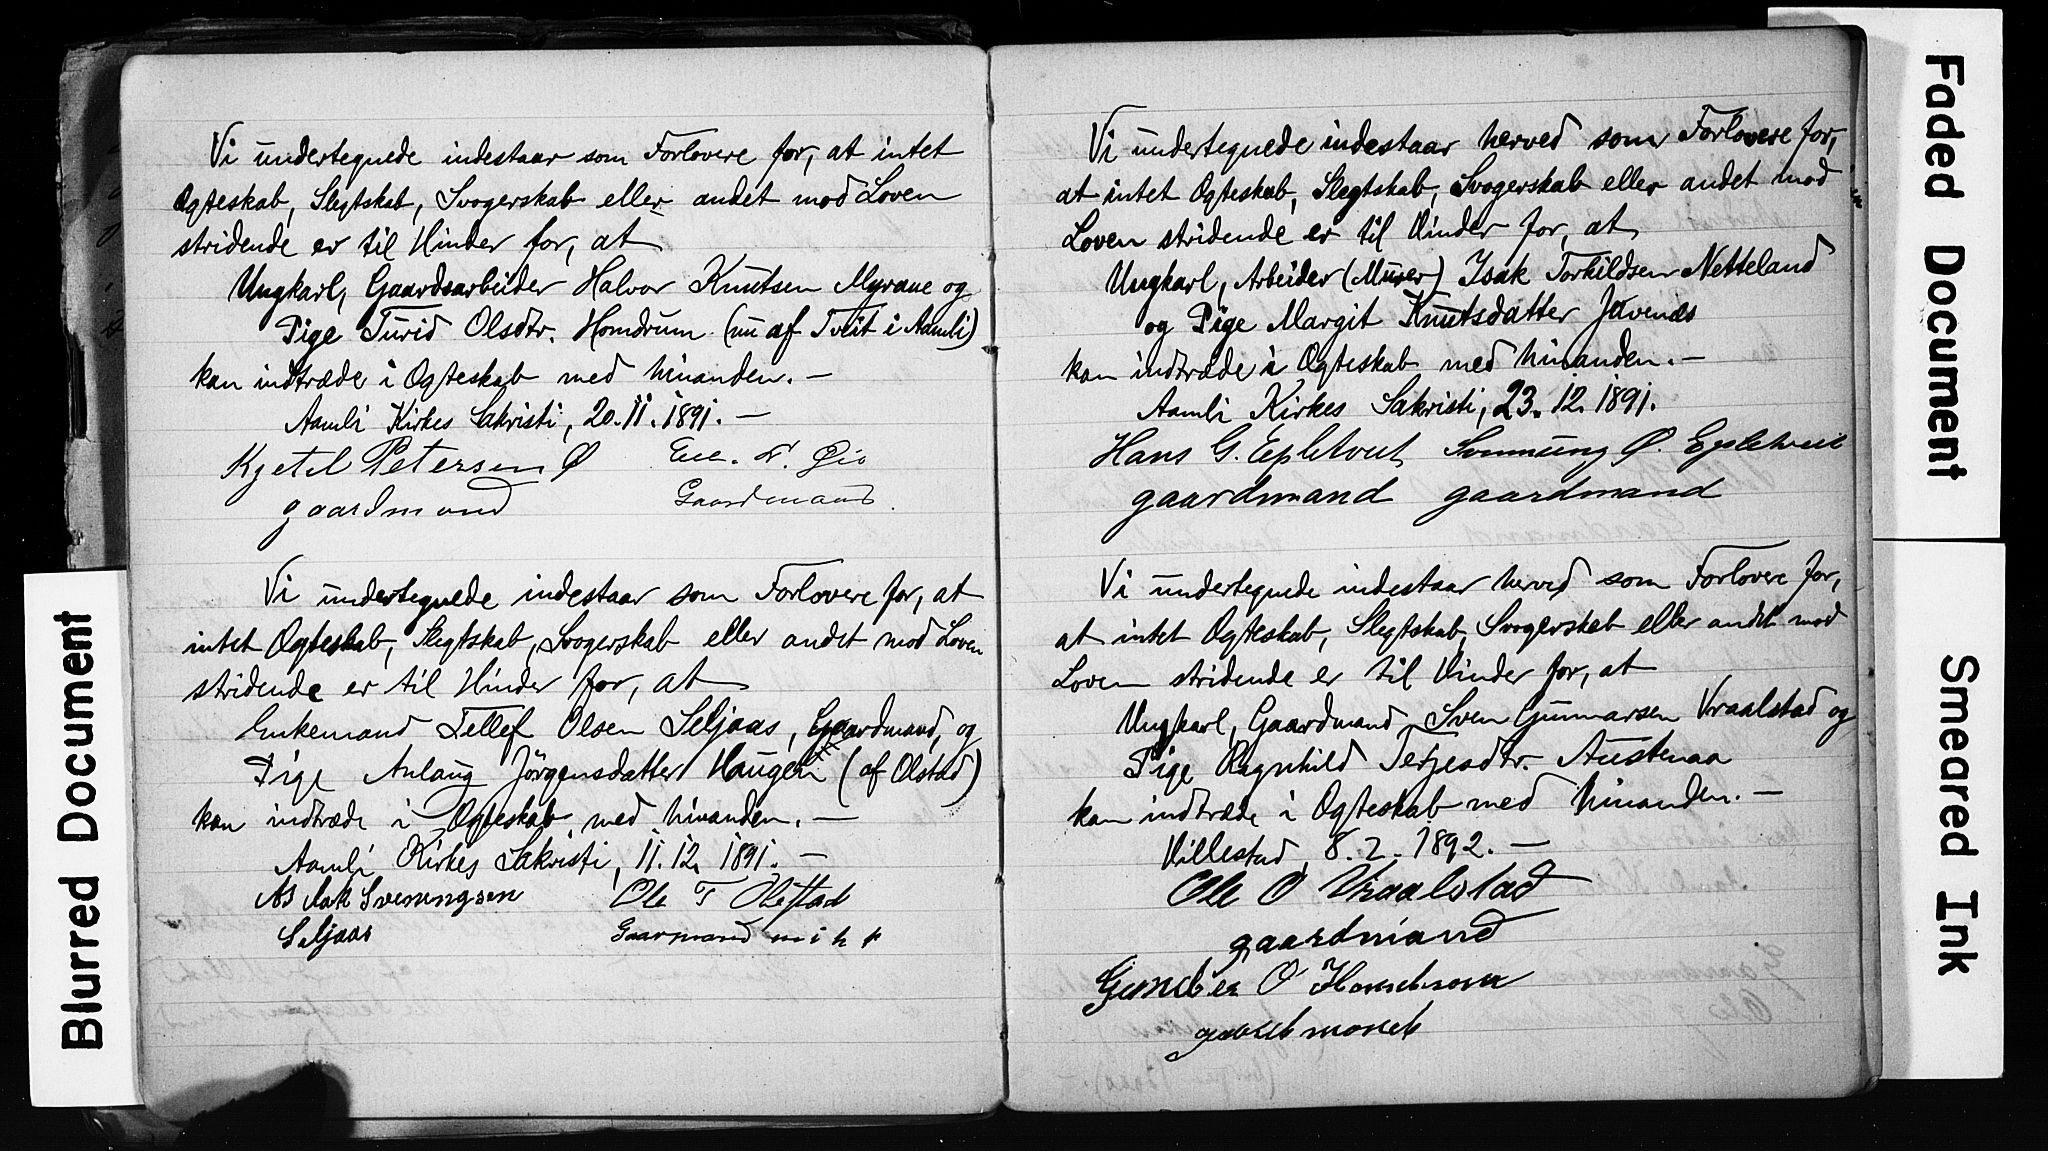 Vi undertegnede indestaar som Forlovere for, at intet
Ogteskab, Slegtskab, Svogerskab eller andet mod Loven
stridende er til Hinder for, at
Ungkarl, Gaardsarbeider Halvor Knutsen Myrane og
Pige Turid Olsdtr. Homdrum (nu af Tveit i Aamli)
kan indtræde i Ogteskab med hinanden. —
Aamli Kirkes Sakristi, 20.11.1891. —
Kjetil Petersen Ø
gaardmand
Gaardmand
Vi undertegnede indestaar som Forlovere for, at
intet Ogteskab, Slegtskab, Svogerskab eller andet mod Loven
stridende er til Hinder for, at
Enkemand Tellef Olsen Seljaas, Gaardmand, og
Pige Anlaug Jörgensdatter Haugen (af Olstad)
kan indtræde i Ogteskab med hinanden. —
Aamli Kirkes Sakristi, 11.12.1891. —
Sveningsen
Seljaas
Ole T
Vi undertegnede indestaar herved som Forlovere for,
at intet Ogteskab, Slegtskab, Svogerskab eller andet mod
Loven stridende er til Hinder for, at
Ungkarl, Arbeider (Murer) Isak Torkildsen Netteland
og Pige Margit Knutsdatter Jævenæs
kan indtræde i Ogteskab med hinanden. —
Aamli Kirkes Sakristi, 23.12.1891.
Hans G. Epletveit Ø. Epletveit
gaardmand gaardmand
Vi undertegnede indestaar herved som Forlovere for,
at intet Ogteskab, Slegtskab, Svogerskab eller andet mod
Loven stridende er til Hinder for, at
Ungkarl, Gaardmand Sven Gunnarsen Vraalstad og
Pige Ragnhild Terjesdtr. Austenaa
kan indtræde i Ogteskab med hinanden. —
Hillestad, 8.2.1892. —
Ole O Vraalstad
gaardmand
O
Blurred Document
Faded Document
Smeared Ink